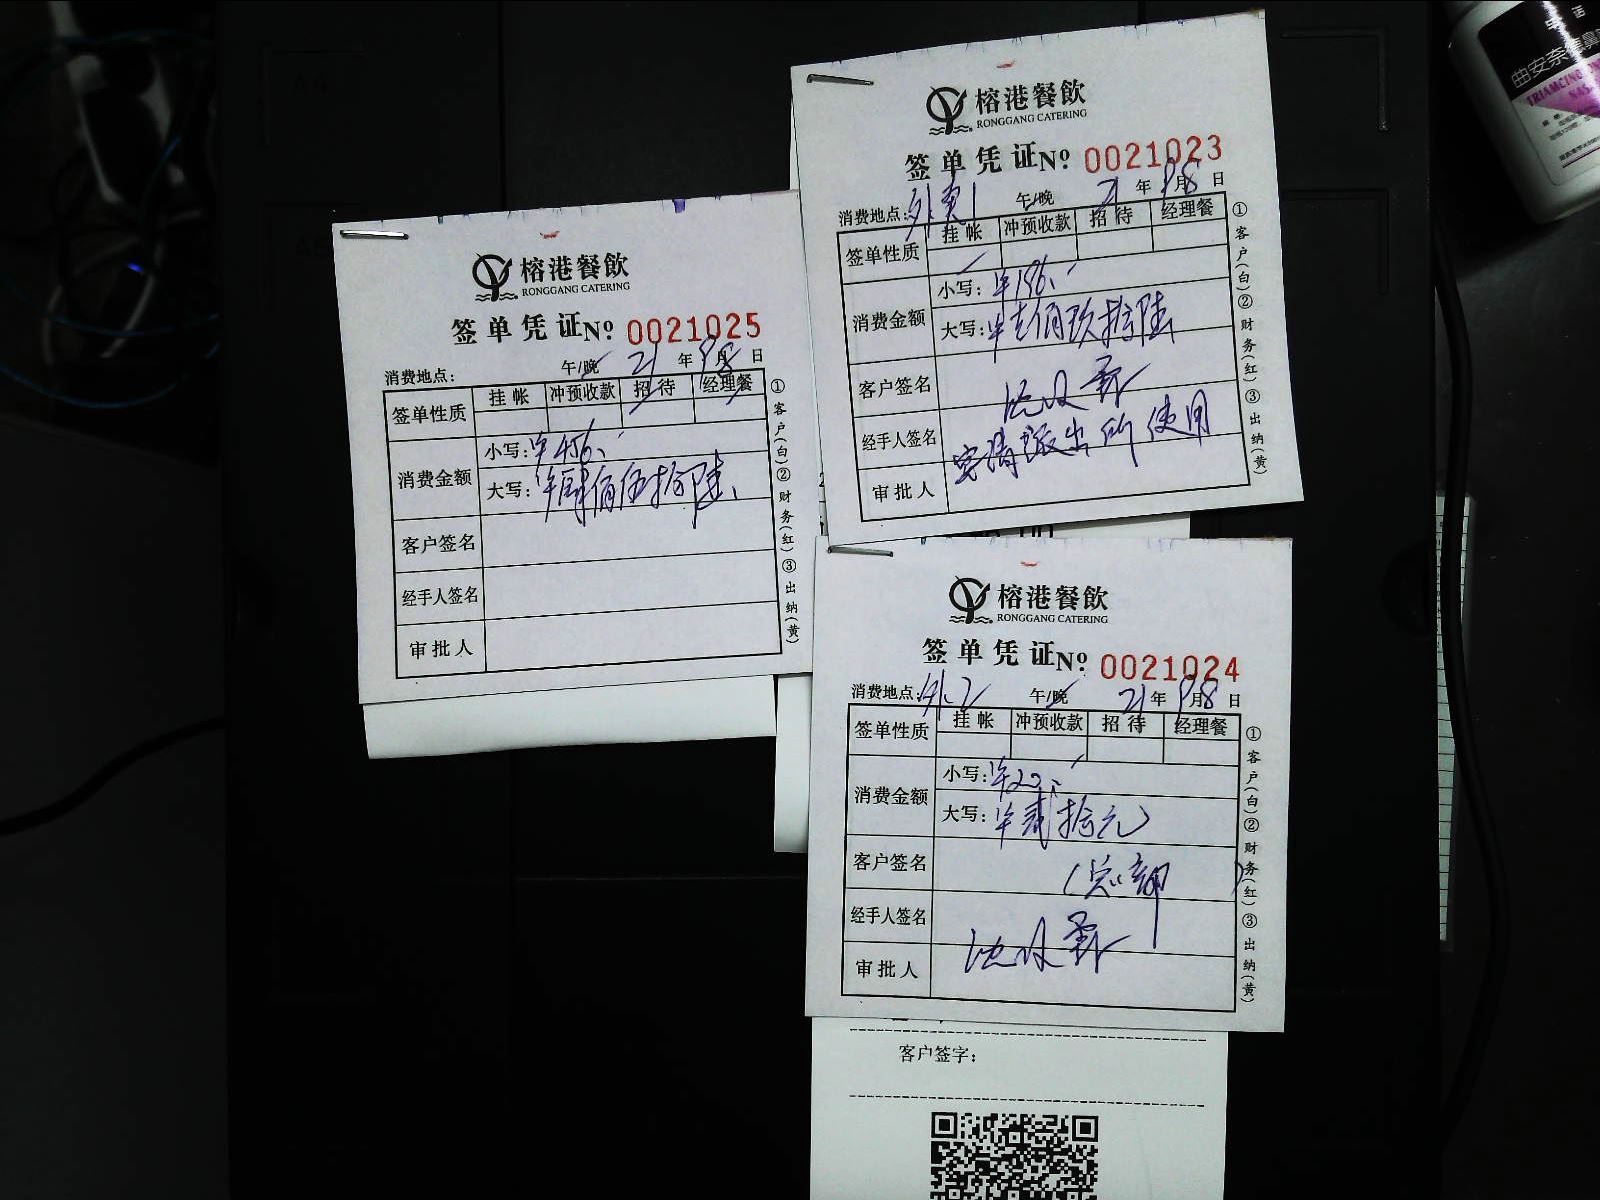 榕港餐飲
RONGGANG CATERING
签单凭证 Nº 0021023
消费地点: 外卖1 午/晚 21年9月8日
签单性质 挂帐 冲预收款 招待 经理餐
消费金额 小写: ¥196.
大写: ¥壹佰玖拾陆
客户签名
经手人签名 派出所使用
审批人
①客户(白)②财务(红)③出纳(黄)
榕港餐飲
RONGGANG CATERING
签单凭证 Nº 0021025
消费地点: 午/晚 21年9月8日
签单性质 挂帐 冲预收款 招待 经理餐
消费金额 小写: ¥456.
大写: ¥肆佰伍拾陆
客户签名
经手人签名
审批人
①客户(白)②财务(红)③出纳(黄)
榕港餐飲
RONGGANG CATERING
签单凭证 Nº 0021024
消费地点: 外2 午/晚 21年9月8日
签单性质 挂帐 冲预收款 招待 经理餐
消费金额 小写: ¥20.
大写: ¥贰拾元
客户签名 (总部)
经手人签名
审批人
①客户(白)②财务(红)③出纳(黄)
客户签字:
曲安奈德鼻